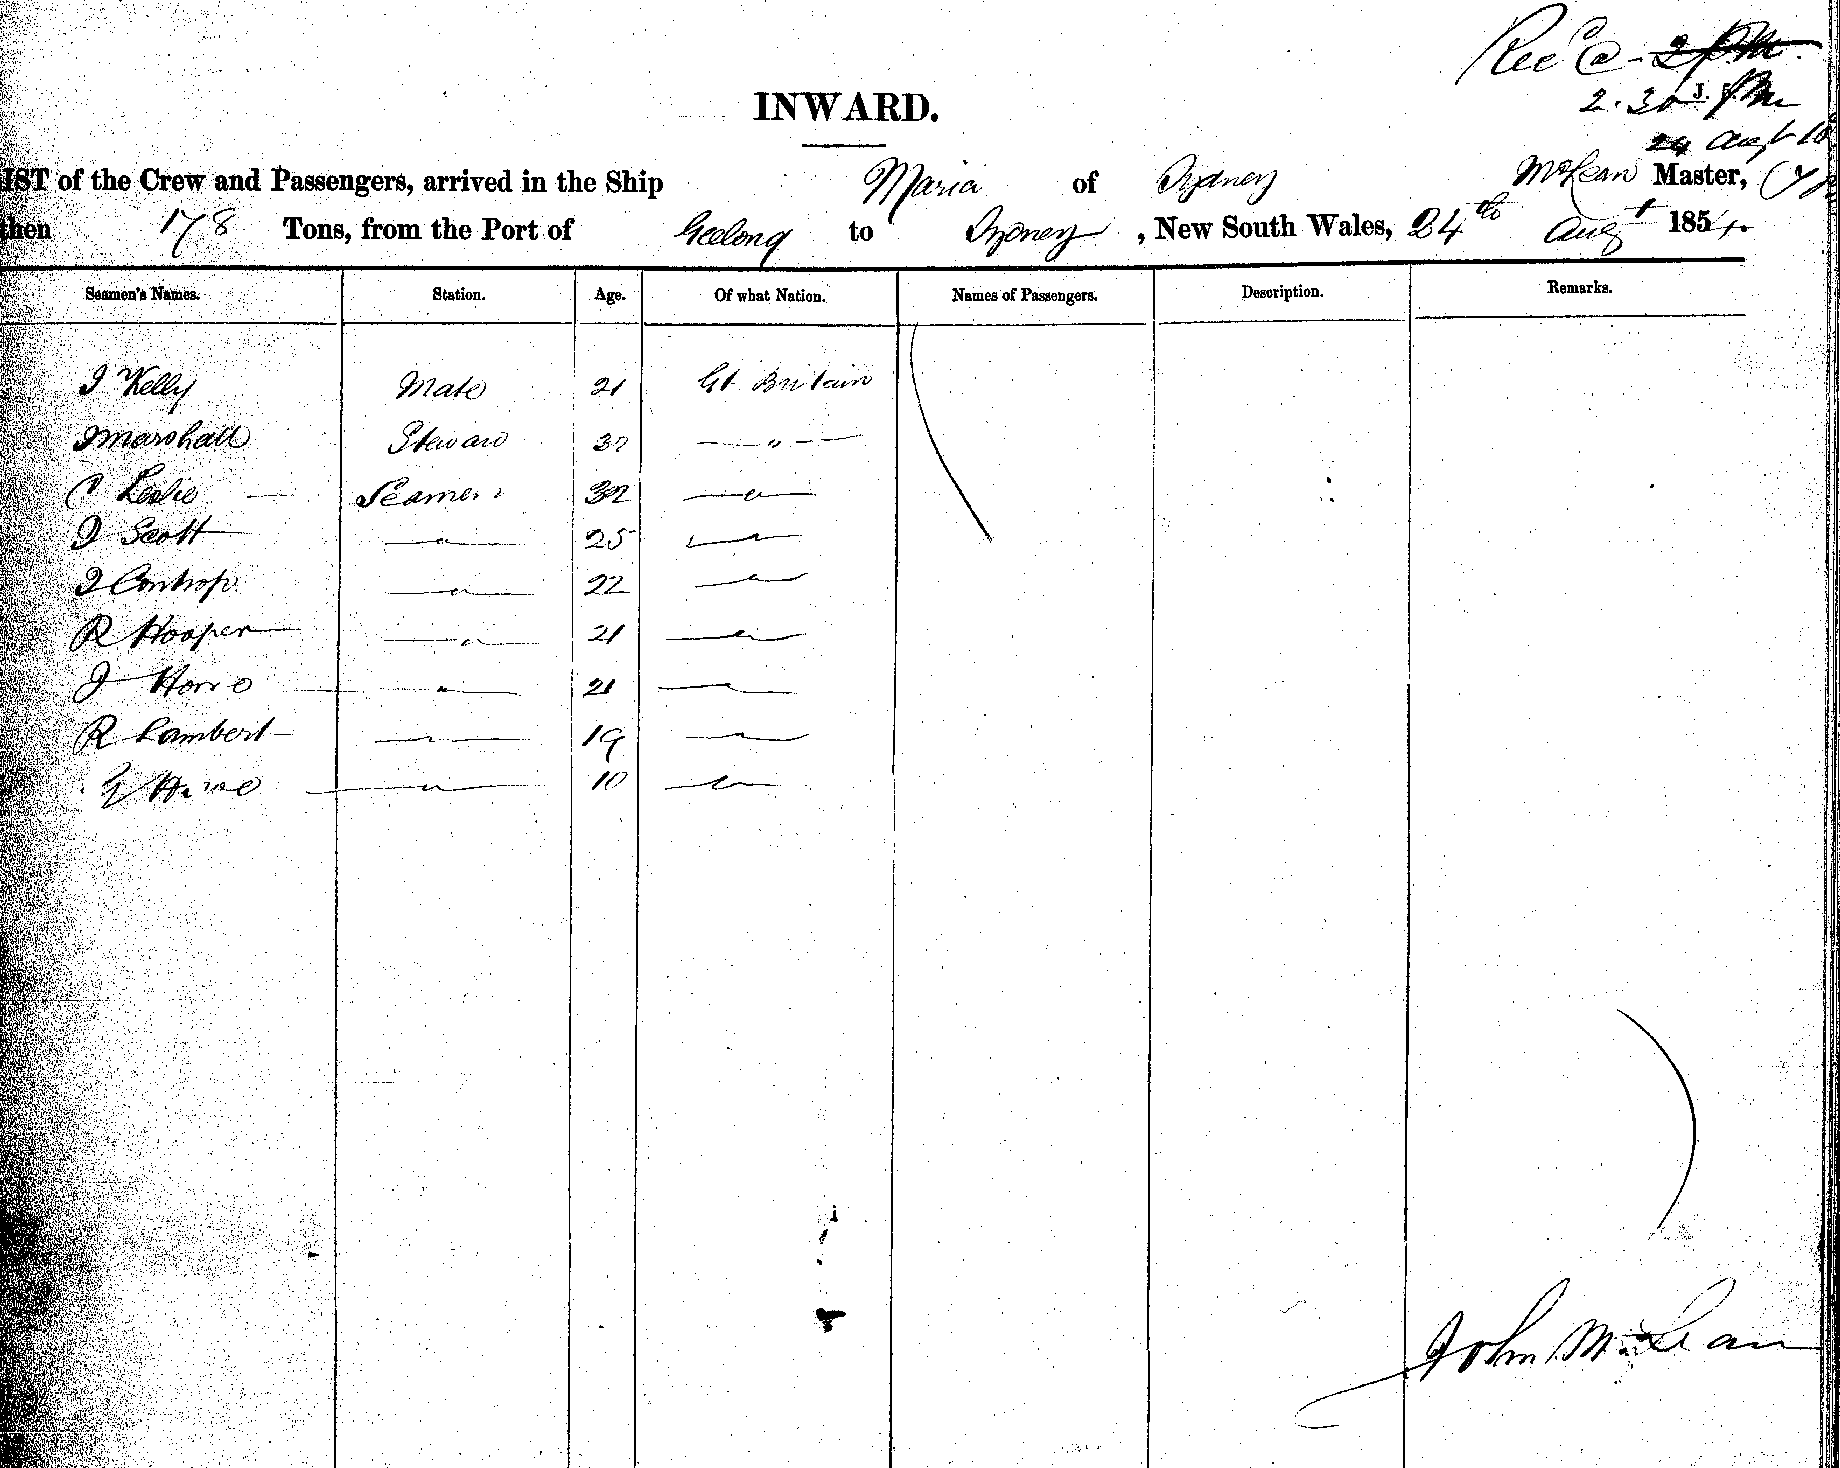 Rec'd @ - 2 PM
2.30 PM
24 Augt
INWARD.
LIST of the Crew and Passengers, arrived in the Ship Maria of Sydney McLean Master,
then 178 Tons, from the Port of Geelong to Sydney, New South Wales, 24th Augt 1854.
Seamen's Names. Station. Age. Of what Nation. Names of Passengers. Description. Remarks.
J Kelly Mate 21 Gt. Britain
J Marshall Steward 37 — " —
C Leslie — Seamen 32 — " —
J Scott — " — 25 — " —
J — " — 22 — " —
R Hooper — " — 21 — " —
J — " — 21 — " —
R Lambert — " — 19 — " —
— " — 10 — " —
John McLean